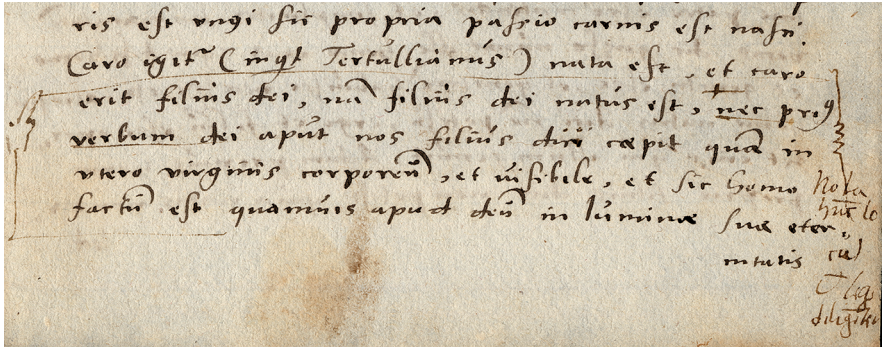 ris est ungi sic propria passio carnis est nasci
Caro igit᷑ (inqt Tertullianus) nata est, et caro
erit filius dei, nā filius dei natus est, nec priꝰ
verbum dei aput nos filius dici cæpit quā in
utero virginis corporeū, et visibile, et sic homo
factū est quamuis apud deū in lumine suæ eter-
nitatis
Nota
hūc lo
cū
lege